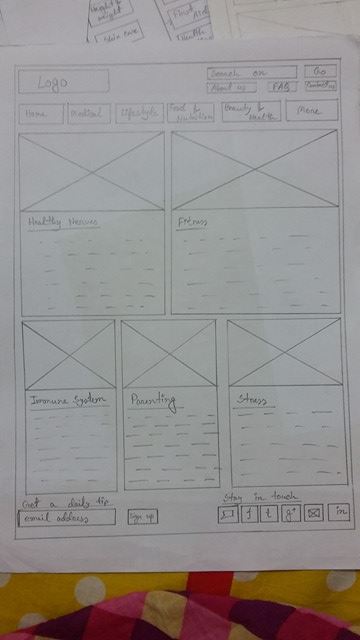 weight & height
Skin care
Food
Health
Logo
Search on
Go
About us
FAQ
Contact us
Home
Medical
Lifestyle
Food & Nutrition
Beauty & Health
More
Healthy Nerves
Fitness
Immune System
Parenting
Stress
Get a daily tip
email address
Sign up
Stay in touch
f
t
g+
in